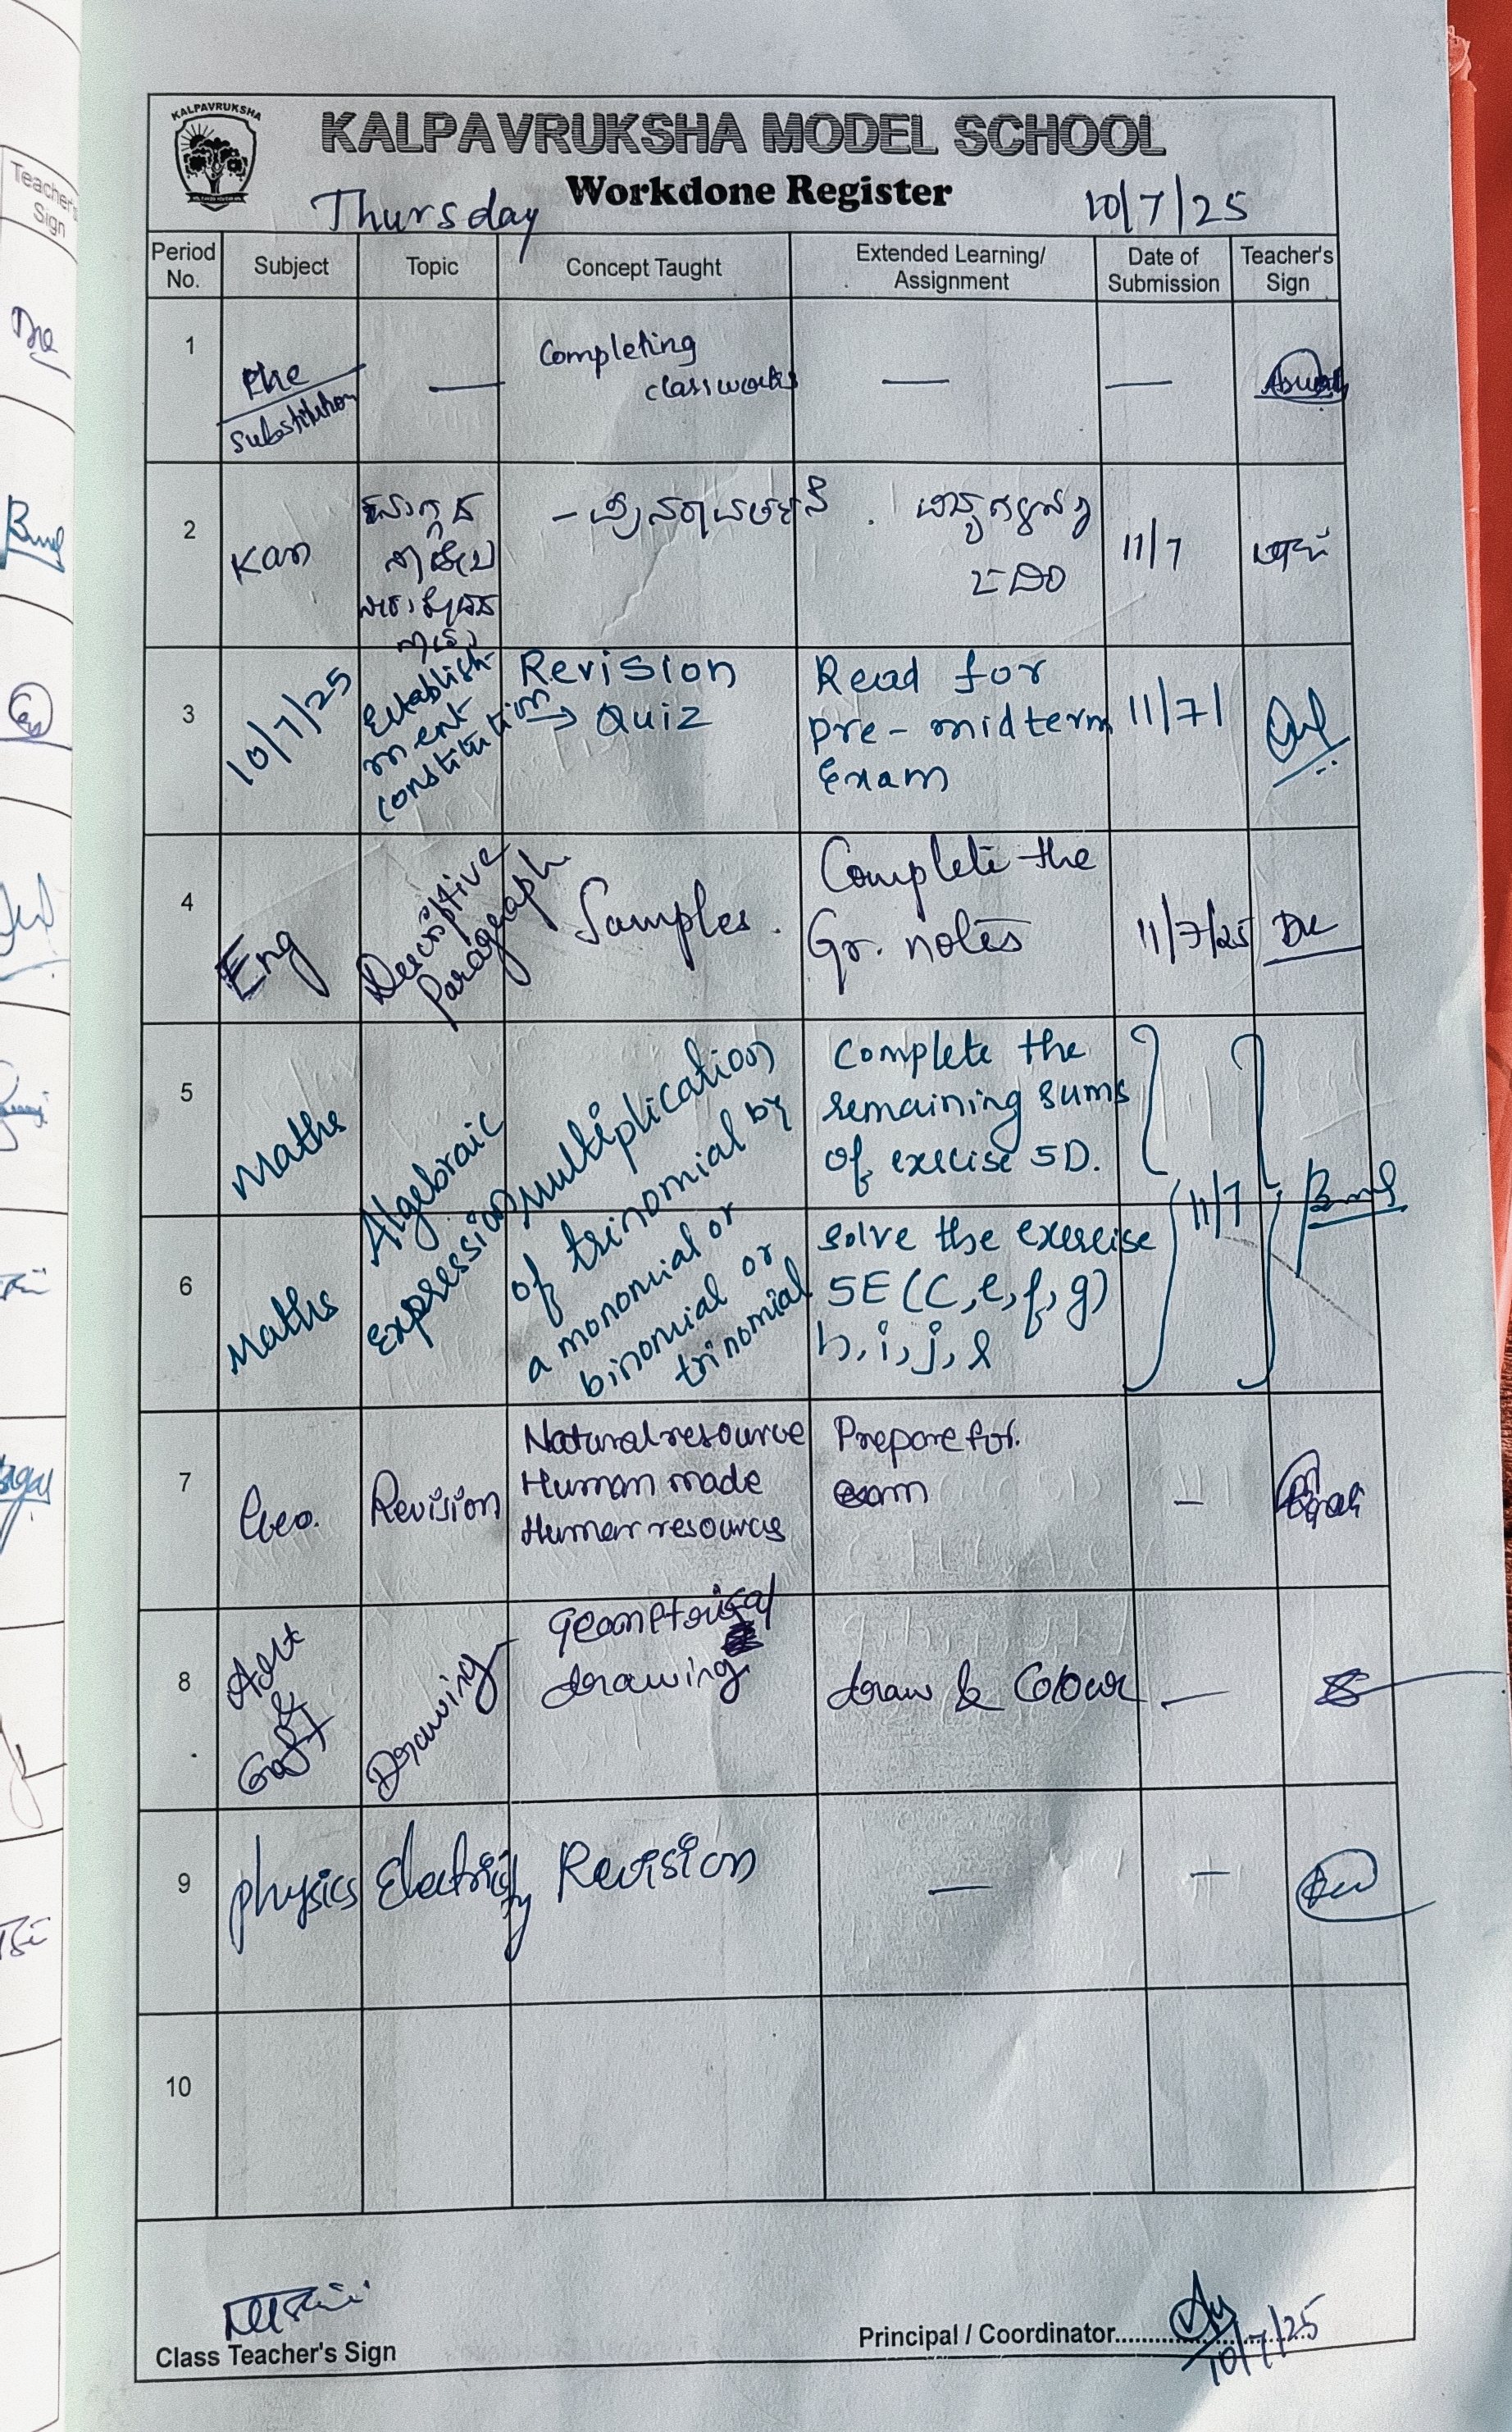 KALPAVRUKSHA
KALPAVRUKSHA MODEL SCHOOL
Workdone Register
Thursday
10/7/25
Period No.
Subject
Topic
Concept Taught
Extended Learning/
Assignment
Date of
Submission
Teacher's
Sign
1
Phe
substitution
—
Completing
classworks
—
—
2
Kan
11/7
3
10/7/25
Establish-
ment
constitution
Revision
→ Quiz
Read for
pre-midterm
Exam
11/7/
4
Eng
Descriptive
Paragraph
Samples.
Complete the
Gr. notes
11/7/25
5
Maths
Algebraic
Expression
multiplication
of trinomial by
a monomial or
binomial or
trinomial
Complete the
remaining sums
of exercise 5D.
11/7
6
Maths
solve the exercise
5E (C, e, f, g)
h, i, j, l
7
Geo.
Revision
Natural resource
Human made
Human resources
Prepare for
exam
—
8
Art
&
Craft
Drawing
geometrical
drawing
draw & Colour
—
9
physics
Electricity
Revision
—
—
10
Class Teacher's Sign
Principal / Coordinator
10/7/25
Teacher's
Sign